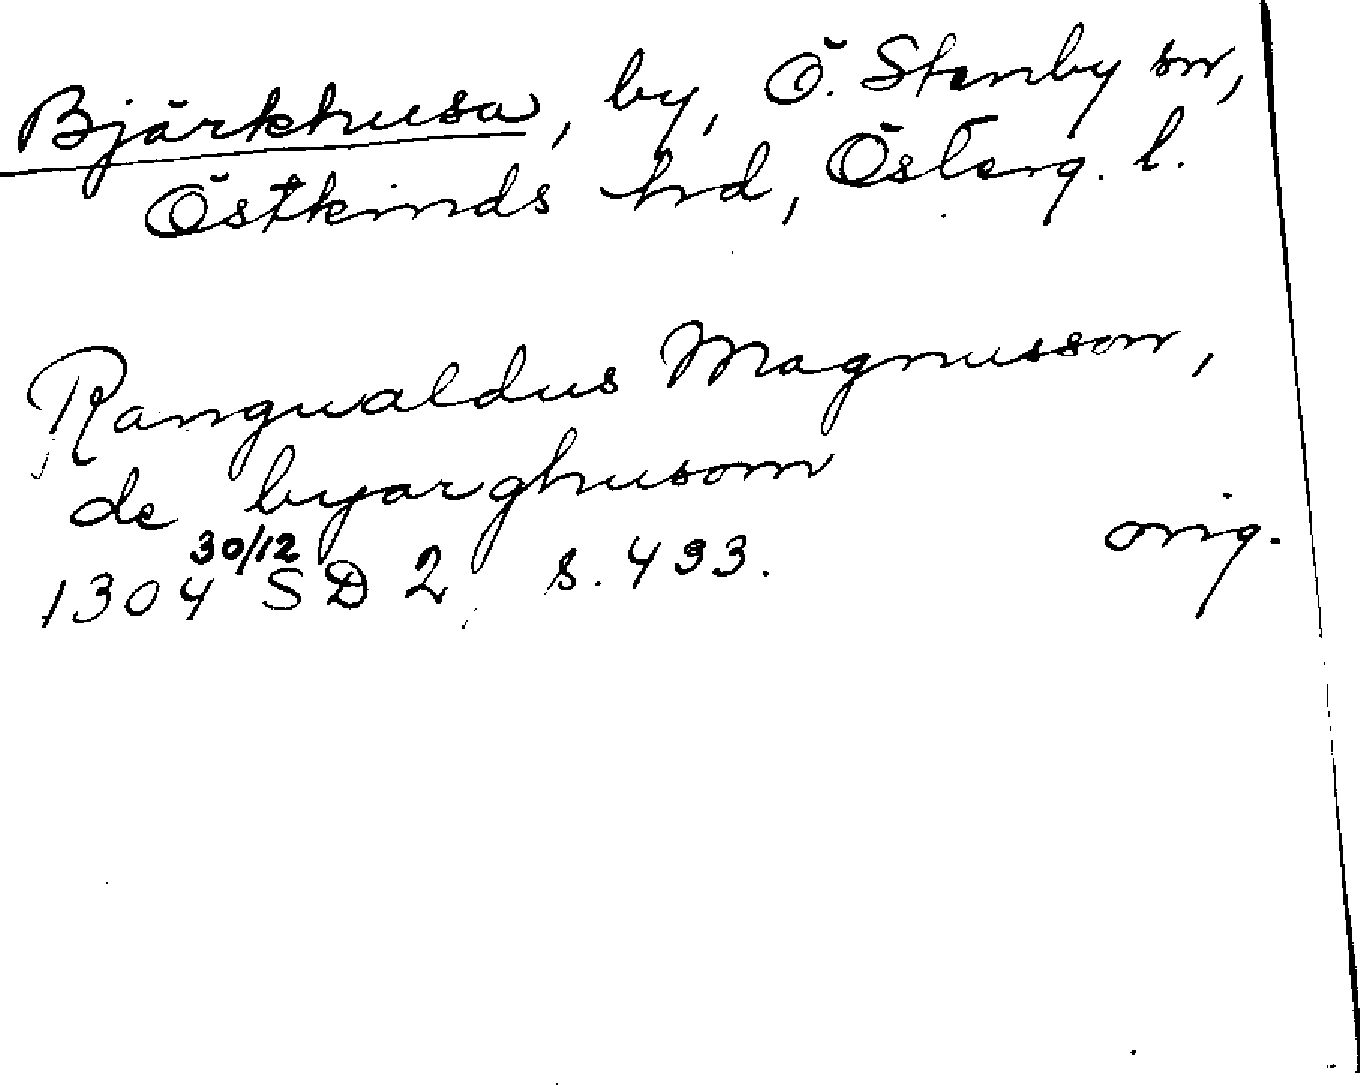 Bjärkhusa, by, Ö. Stenby sn,
Östkinds hrd, Österg. l.
Rangualdus Magnusson,
de byarghusom
1304 30/12 SD 2 s. 493. orig.